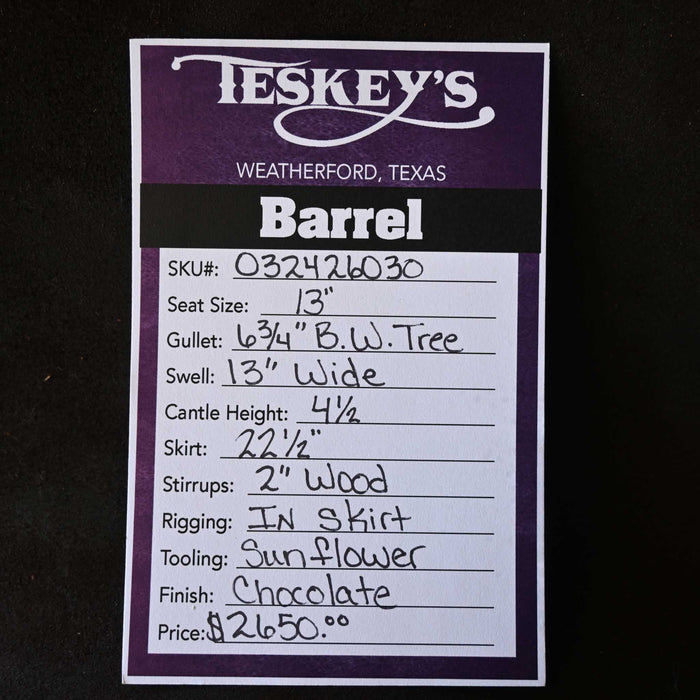 TESKEY'S
WEATHERFORD, TEXAS
Barrel
SKU#: 032426030
Seat Size: 13"
Gullet: 6 3/4" B.W. Tree
Swell: 13" Wide
Cantle Height: 4 1/2
Skirt: 22 1/2"
Stirrups: 2" Wood
Rigging: IN Skirt
Tooling: Sunflower
Finish: Chocolate
Price: $2650.00